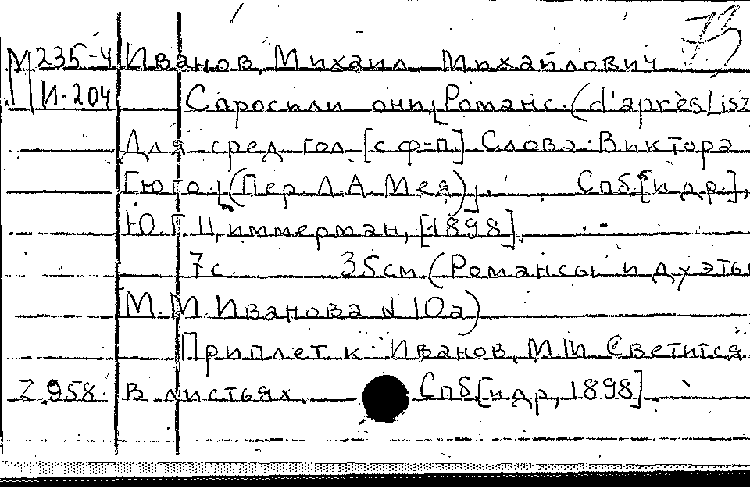 73
М 235-4 Иванов, Михаил Михайлович
И-204 Спросили они. Романс. (d'après Lisz
Для сред. гол. [с ф-п.] Слова Виктора
Гюго (Пер. Л.А. Мея). Спб. [и др.],
Ю.Г. Циммерман, [1898].
7 с. 35 см. (Романсы и дуэты
М.М. Иванова № 10а)
Приплет. к: Иванов, М.М. Светится
Z.958. в листьях. Спб. [и др., 1898].